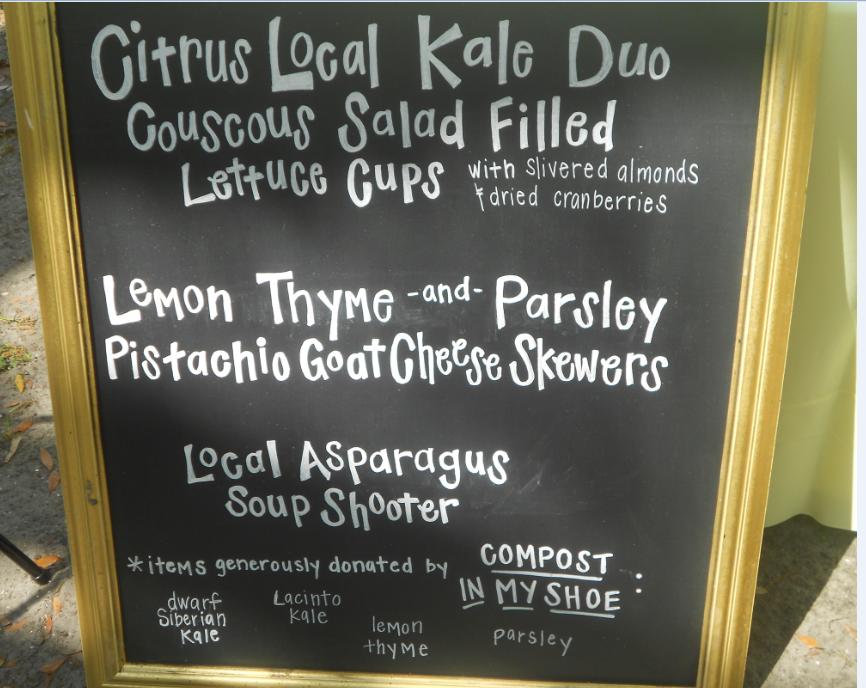 Citrus Local Kale Duo
Couscous Salad Filled
Lettuce Cups with slivered almonds
& dried cranberries
Lemon Thyme -and- Parsley
Pistachio Goat Cheese Skewers
Local Asparagus
Soup Shooter
*items generously donated by COMPOST
IN MY SHOE :
dwarf
Siberian
Kale
Lacinto
Kale
lemon
thyme
parsley